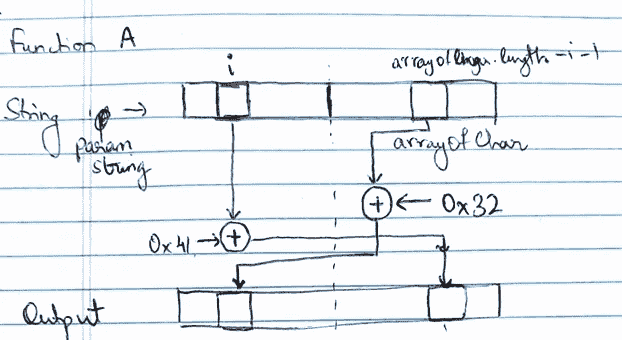 Function A
i
arrayof .length - i - 1
String ip →
param
string
arrayOfChar
+ ← 0x32
0x41 → +
Output